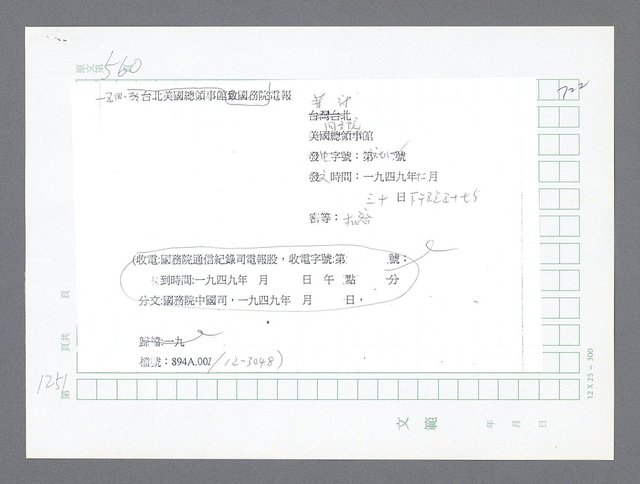 原文第 560
722
台北美國總領事館致國務院電報
台灣台北
國務院
美國總領事館
發電字號：第 號
發文時間：一九四九年 月
三十日下午
密等：
(收電:國務院通信紀錄司電報股，收電字號:第 號；
到時間:一九四九年 月 日 午 點 分
分文:國務院中國司，一九四九年 月 日，
歸檔:一九
檔號：894A.00/12-3048)
頁共 頁
第 1251
12 X 25 = 300
文範 年 月 日